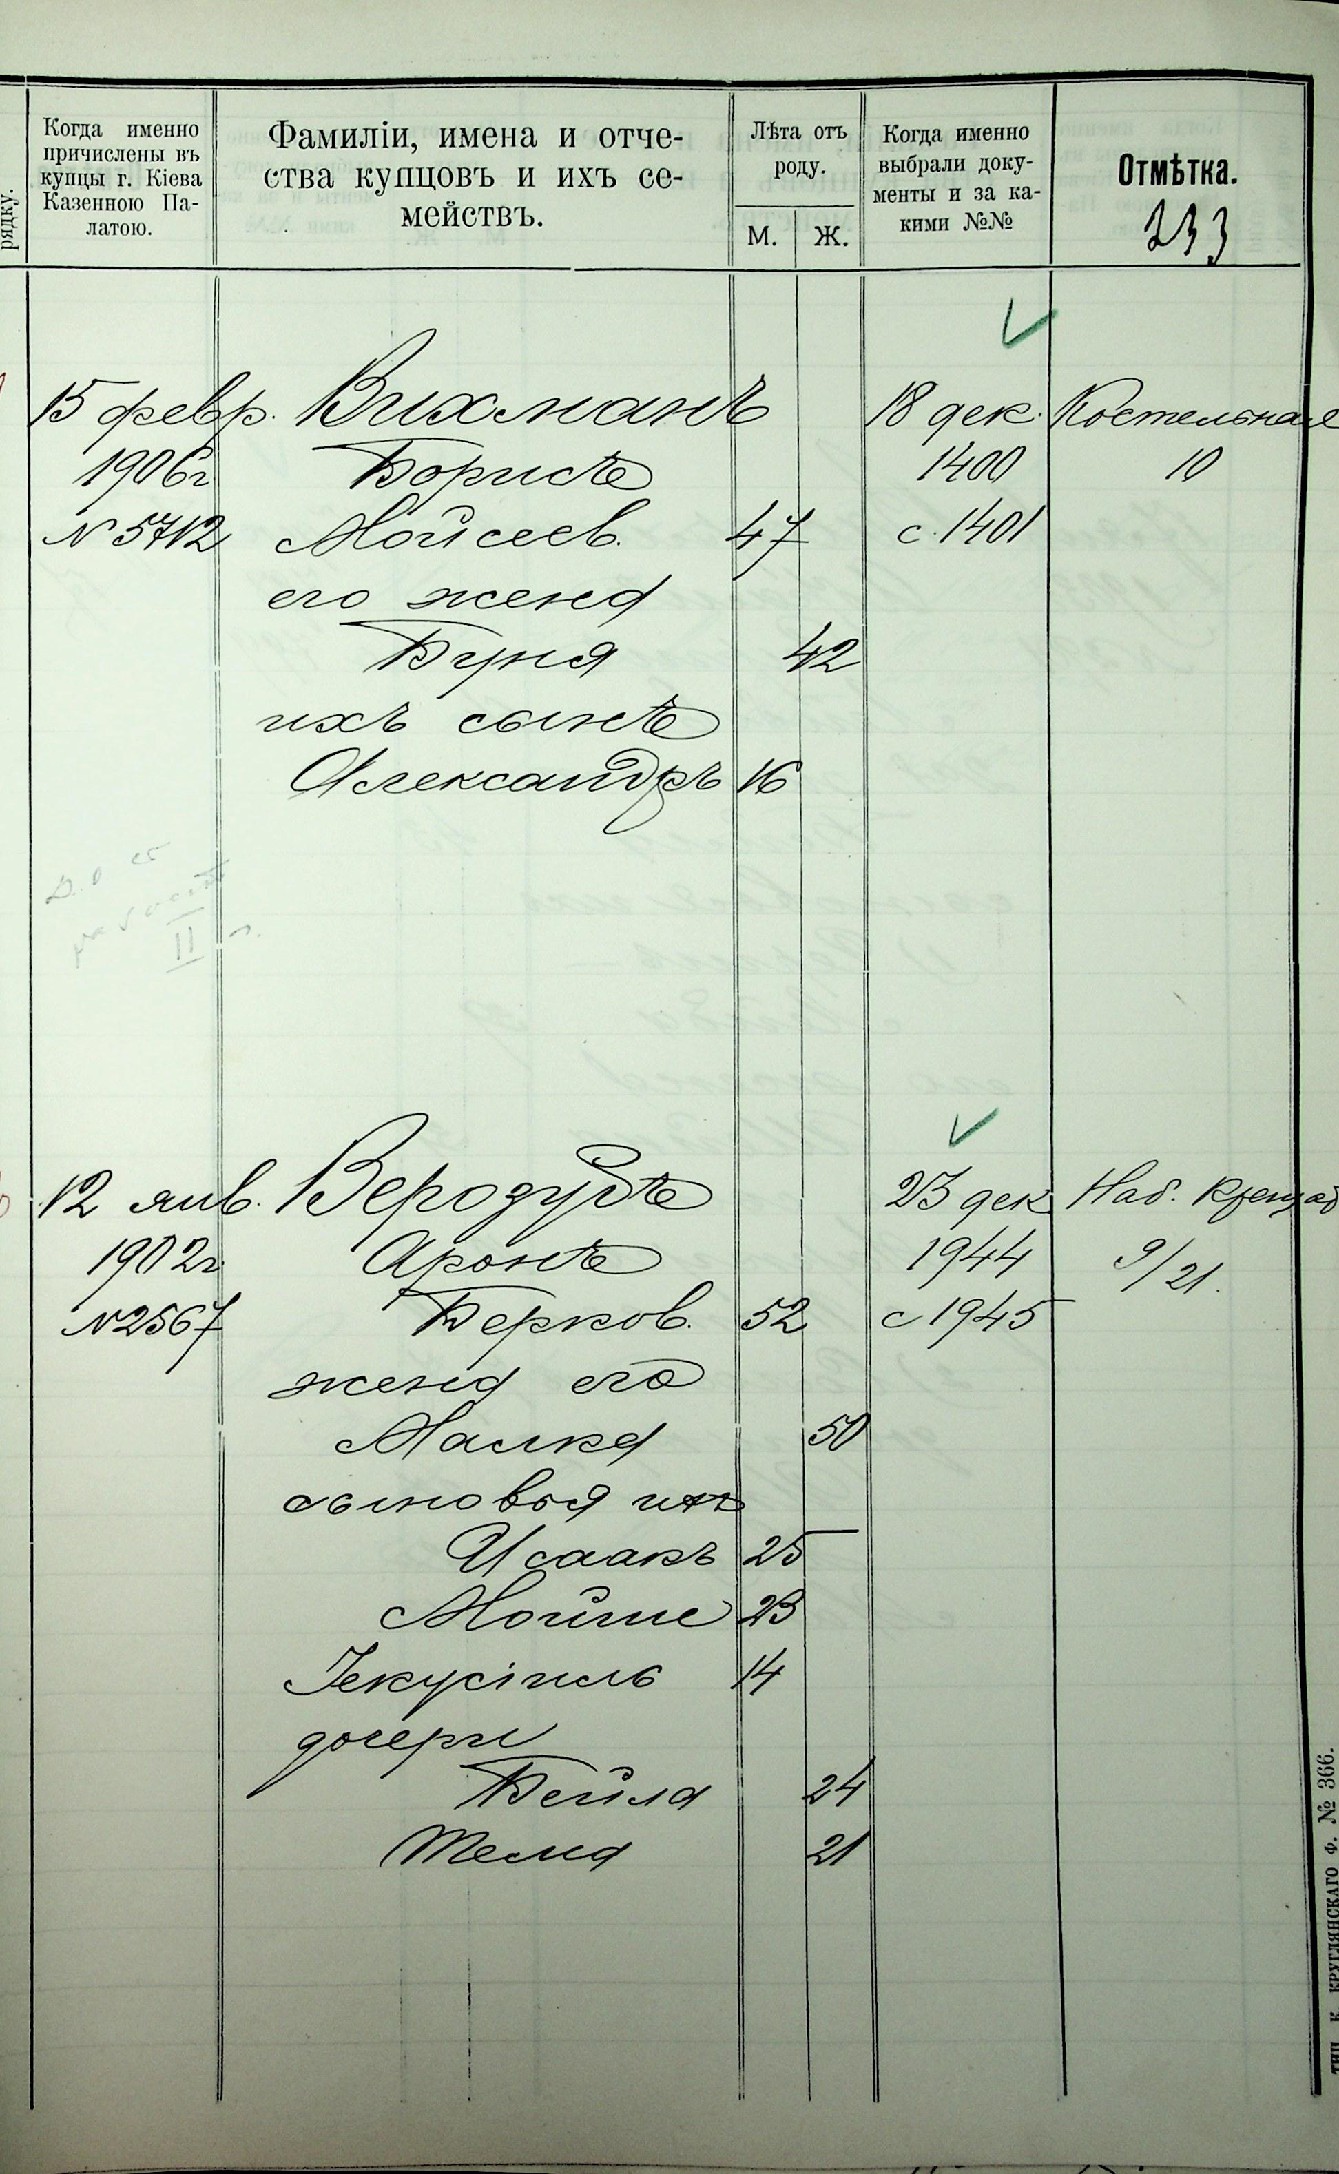 рядку.
Когда именно
причислены въ
купцы г. Кіева
Казенною Па-
латою.
Фамиліи, имена и отче-
ства купцовъ и ихъ се-
мействъ.
Лѣта отъ
роду.
М.
Ж.
Когда именно
выбрали доку-
менты и за ка-
кими №№
Отмѣтка.
233
15 февр. Вихманъ 18 дек. Костельная
1906г Борисъ 1400 10
№ 5712 Мойсеев. 47 с. 1401
его жена
Буня 42
ихъ сынъ
Александръ 16
II
12 янв. Веродубъ 23 дек Наб. Крещат
1902г. Аронъ 1944 9/21.
№2567 Берков. 52 с 1945
жена его
Малка 50
сыновья ихъ
Исаакъ 25
Мойше 23
Іекусіиль 14
дочери
Бейла 24
Тема 21
ТИП. К. КРУГЛЯНСКАГО Ф. № 366.